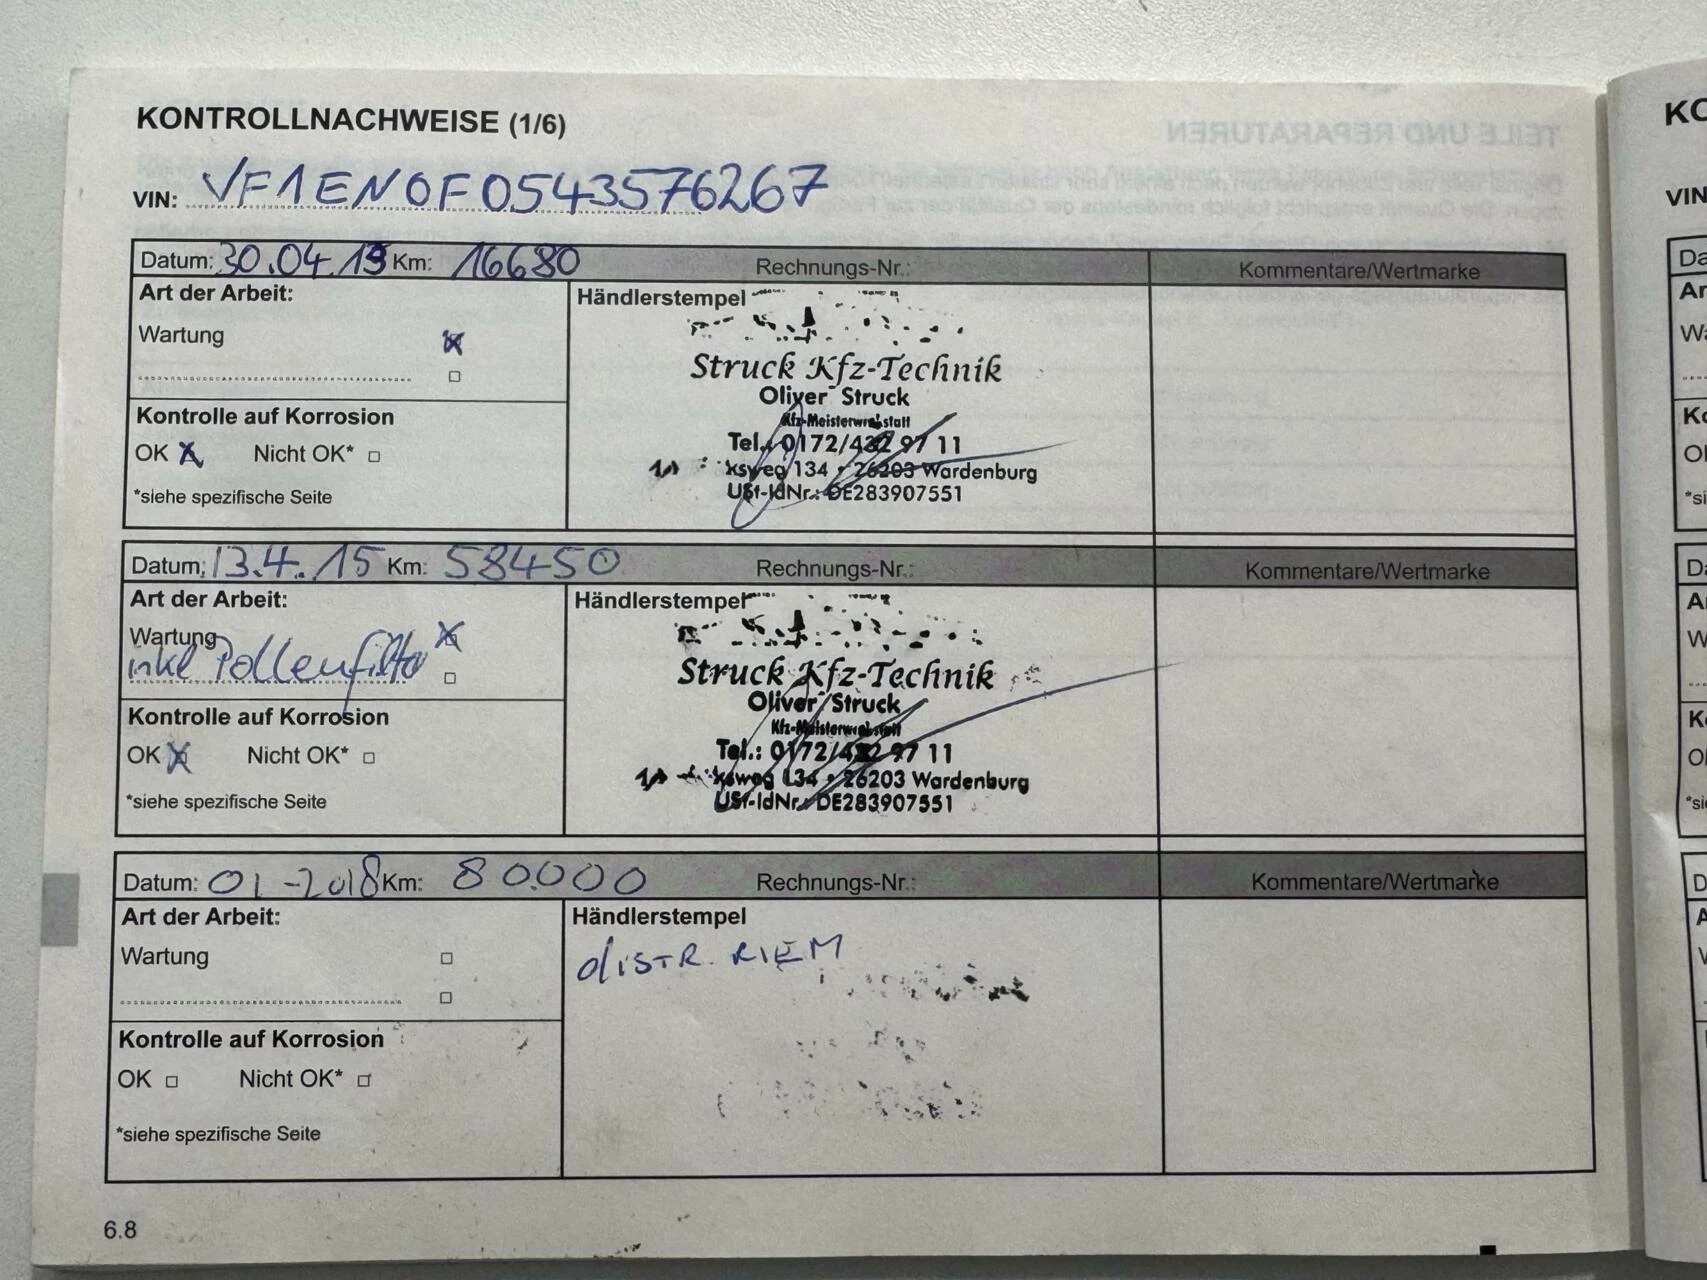 KONTROLLNACHWEISE (1/6)
VIN: VF1EN0F0543576267
Datum: 30.04.13 Km: 16680 Rechnungs-Nr.: Kommentare/Wertmarke
Art der Arbeit: Händlerstempel
Wartung
Struck Kfz-Technik
Oliver Struck
Kfz-Meisterwerkstatt
Kontrolle auf Korrosion
Tel.: 0172/432 97 11
OK Nicht OK*
ksweg 134 • 26203 Wardenburg
*siehe spezifische Seite
USt-IdNr.: DE283907551
Datum: 13.4.15 Km: 58450 Rechnungs-Nr.: Kommentare/Wertmarke
Art der Arbeit: Händlerstempel
Wartung
inkl Pollenfilter
Struck Kfz-Technik
Oliver Struck
Kfz-Meisterwerkstatt
Kontrolle auf Korrosion
Tel.: 0172/432 97 11
OK Nicht OK*
ksweg 134 • 26203 Wardenburg
*siehe spezifische Seite
USt-IdNr.: DE283907551
Datum: 01-2018 Km: 80.000 Rechnungs-Nr.: Kommentare/Wertmarke
Art der Arbeit: Händlerstempel
Wartung
distr. RIEM
Kontrolle auf Korrosion
OK Nicht OK*
*siehe spezifische Seite
6.8
KO
VIN